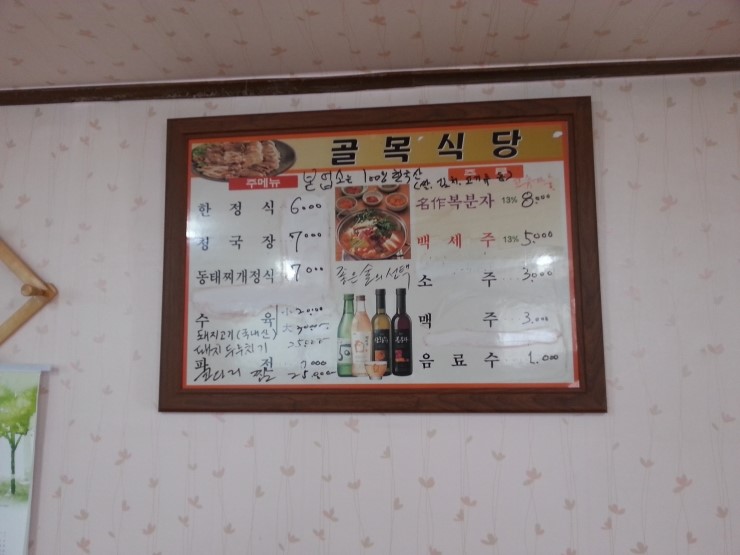 골목식당
본 업소는 100% 한국산
주메뉴
한정식 6.000
청국장 7000
동태찌개정식 7000
수육 小 20.000
돼지고기(국내산)
돼지두루치기 25000
파전 7.000
25.000
좋은 술의 선택
名作복분자 13% 8.000
백세주 13% 5.000
소주 3.000
맥주 3.000
음료수 1.000